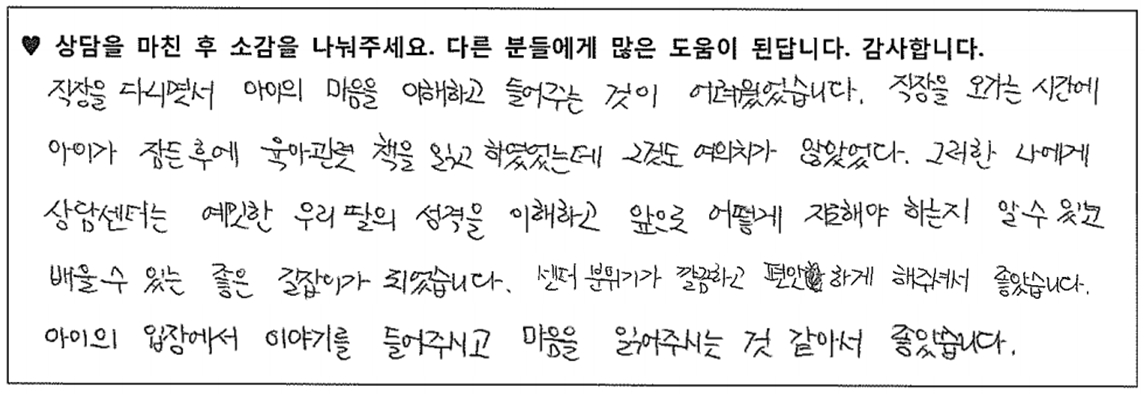 ♥ 상담을 마친 후 소감을 나눠주세요. 다른 분들에게 많은 도움이 된답니다. 감사합니다.
직장을 다니면서 아이의 마음을 이해하고 들어주는 것이 어려웠었습니다. 직장을 오가는 시간에
아이가 잠든후에 육아관련 책을 읽고 하였었는데 그것도 여의치가 않았었다. 그러한 나에게
상담센터는 예민한 우리 딸의 성격을 이해하고 앞으로 어떻게 해야 하는지 알수 있고
배울수 있는 좋은 길잡이가 되었습니다. 센터 분위기가 깔끔하고 편안하게 해주셔서 좋았습니다.
아이의 입장에서 이야기를 들어주시고 마음을 읽어주시는 것 같아서 좋았습니다.